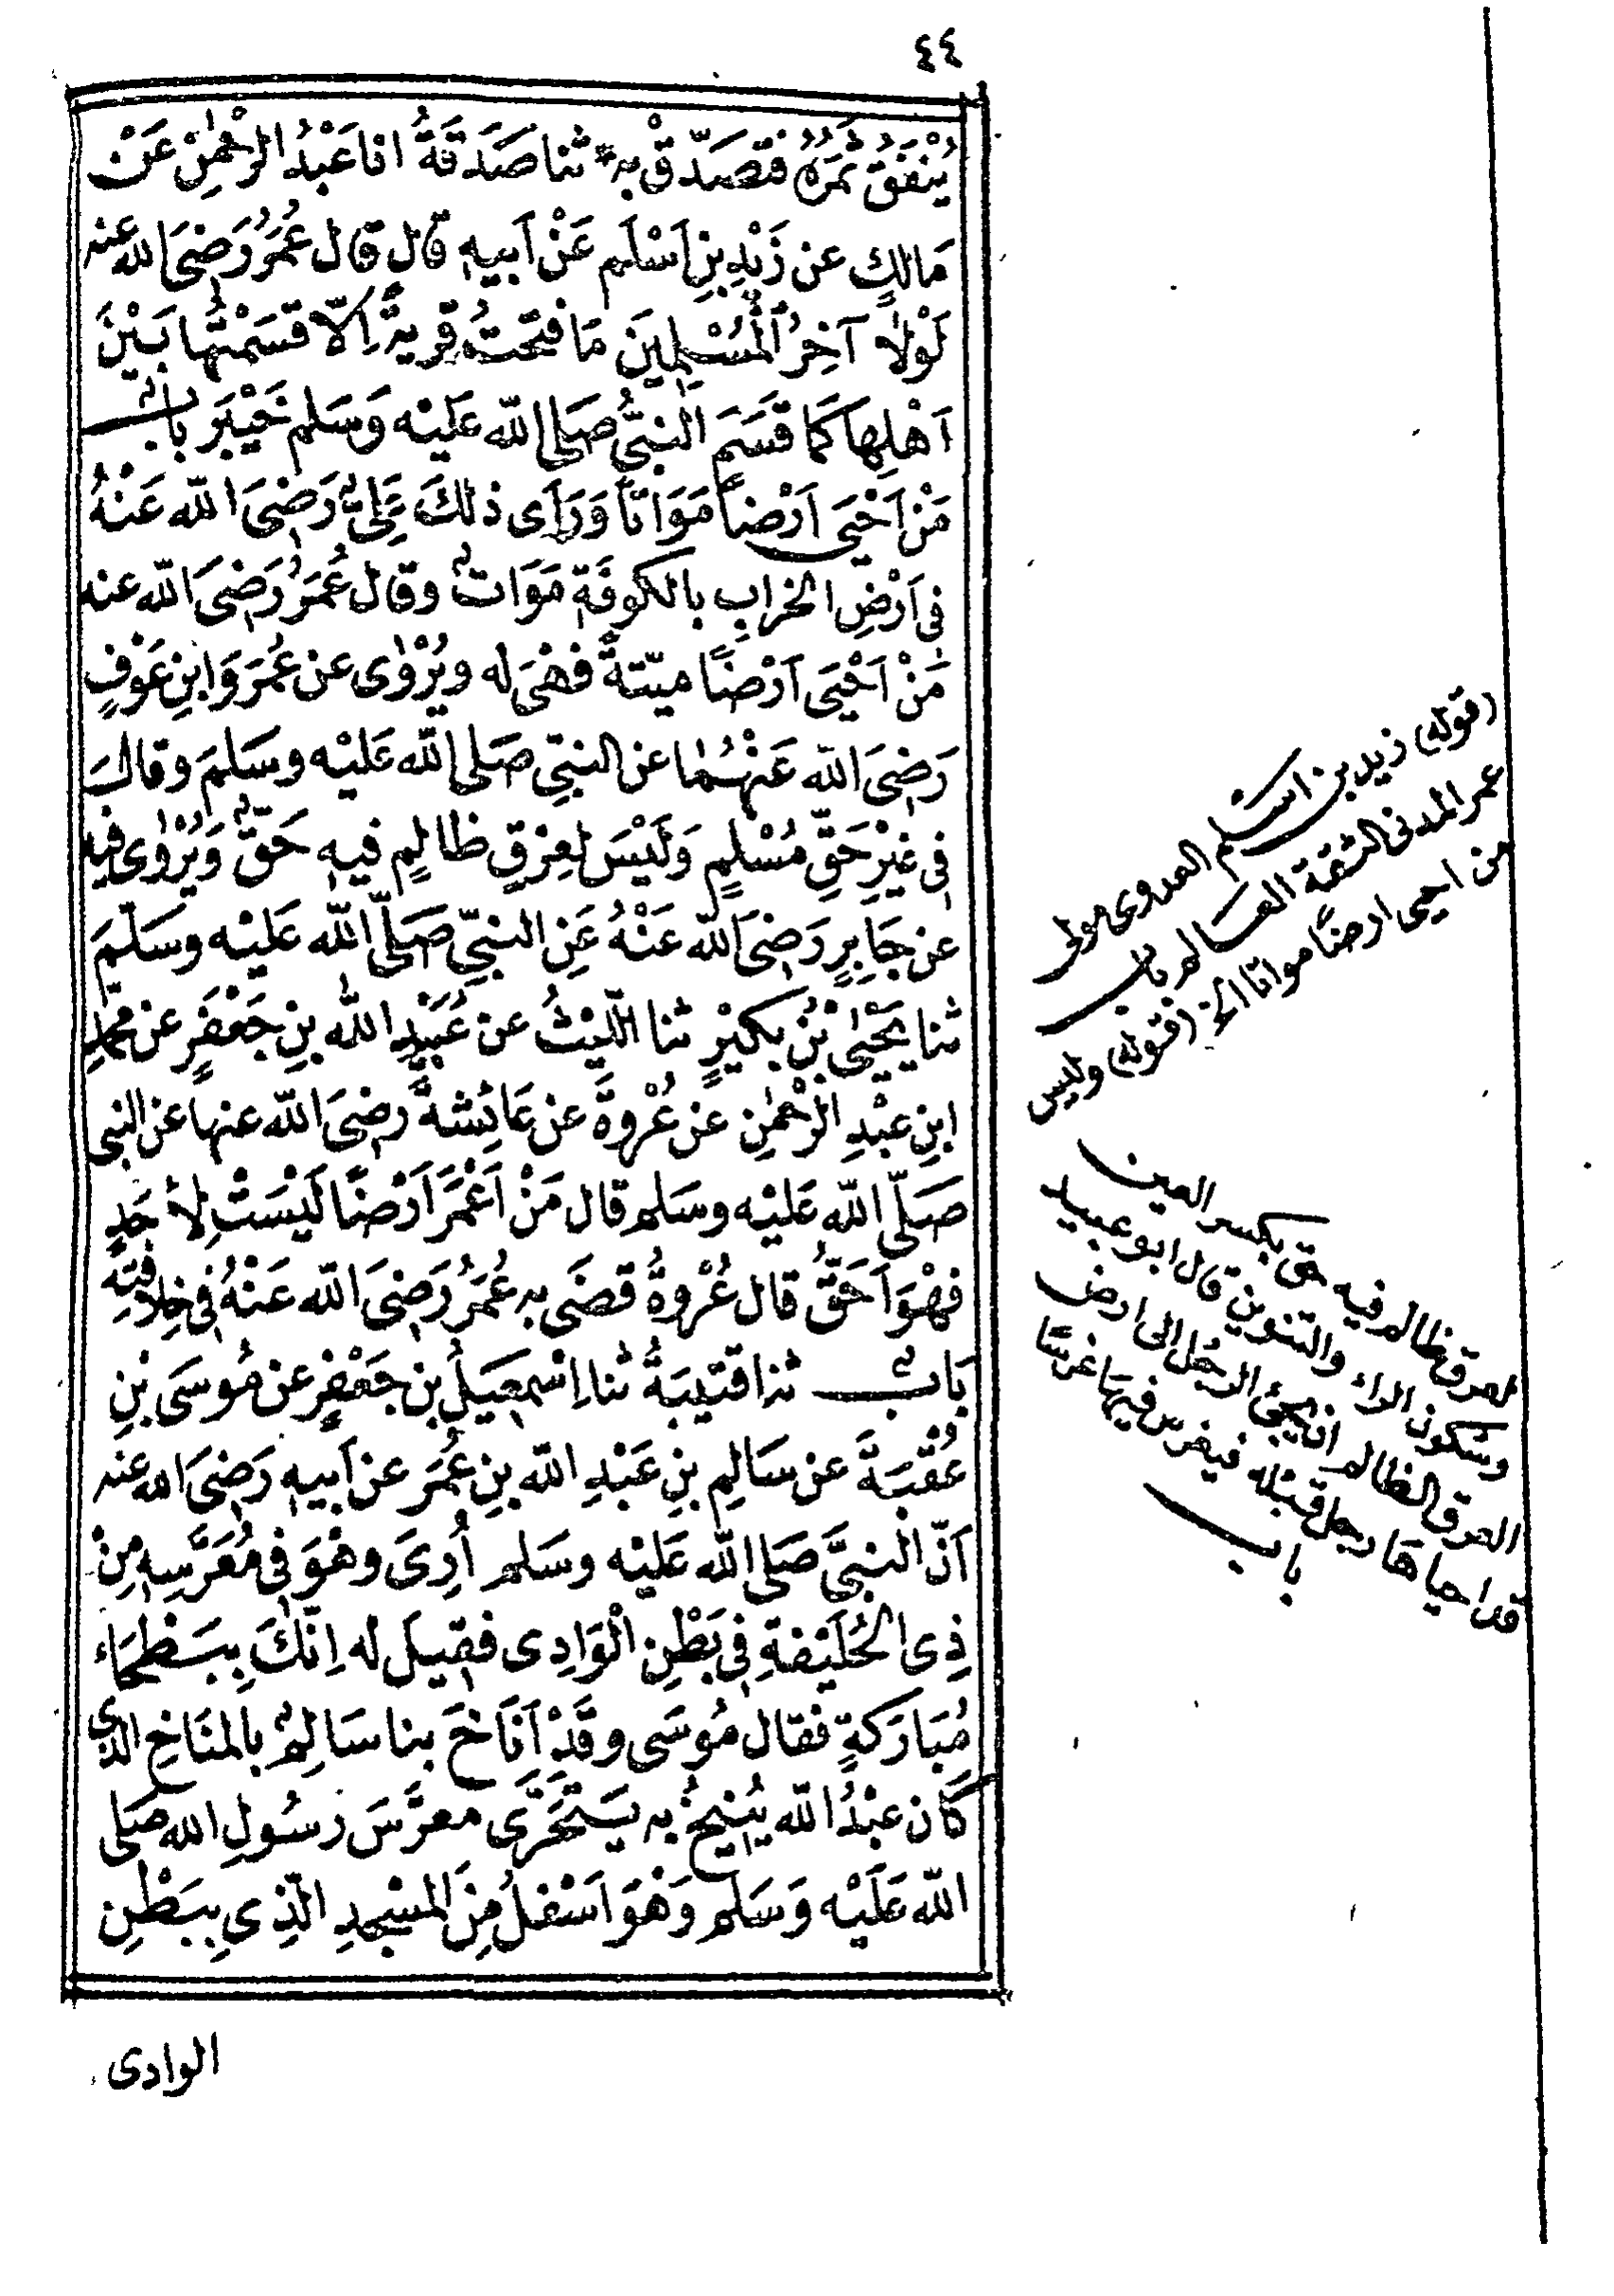 ٤٤
يُنْفَقُ ثَمَرُهُ فتَصَدَّقْ بِه ثنا صَدَقَةُ انا عَبْدُ الرَّحْمٰنِ عَنْ
مَالكٍ عن زَيْدِ بنِ اَسْلَم عَنْ اَبيهِ قال قال عُمَرُ رَضِىَ الله عنه
لَوْلاَ آخِرُ الْمُسْلِمِينَ مَا فتَحتُ قريةً اِلاّ قسَمْتُها بَيْنَ
اَهْلِها كَمَا قسَمَ النبىُّ صَلى الله عَلَيْه وَسَلم خَيْبَرَ بابٌ
مَنْ اَحْيَى اَرْضاً مَوَاتاً وَرَاَى ذلكَ عَلِىٌّ رَضِىَ الله عَنْهُ
فى اَرْضِ الخرابِ بالكوفَةِ مَوَاتٌ وقال عُمَرُ رَضِىَ الله عنه
مَنْ اَحْيَى اَرْضًا ميّتةً فهْىَ له ويُرْوٰى عن عُمَرَ وَابنِ عَوْفٍ
رَضِىَ الله عَنْهُمَا عن النبىِّ صَلى الله عَلَيْه وسَلمَ وقالَ
فى غَيْرِ حَقِّ مُسْلمٍ وَلَيْسَ لعِرْقٍ ظالمٍ فيهِ حَقٌّ وَيُرْوٰى فيهِ
عن جَابِرٍ رَضِىَ الله عَنْهُ عَنِ النبىِّ صَلَّى الله عَلَيْه وسَلَّمَ
ثنا يَحْيٰى بْنُ بكَيْرٍ ثنا اللَّيْثُ عن عُبَيْدِ الله بنِ جَعْفَرٍ عن محمّدِ
ابنِ عبْدِ الرَّحْمٰنِ عن عُرْوةَ عن عَائشةَ رَضِىَ الله عنها عن النبى
صَلَّى الله عَلَيْه وسَلم قال مَنْ اَعْمَرَ اَرْضًا لَيْسَتْ لِاَحَدٍ
فهْوَ اَحَقُّ قال عُرْوةُ قضَى بِه عُمَرُ رَضِىَ الله عَنْهُ فى خِلافتِهِ
بَابٌ ثنا قتَيبَةُ ثنا اِسْمٰعِيلُ بن جَعْفَرٍ عن مُوسَى بْنِ
عُقْبَةَ عن سَالِم بنِ عَبْدِ الله بنِ عُمَر عن اَبيهِ رَضِىَ الله عنه
اَنَّ النبىَّ صَلى الله عَلَيْه وسَلم اُرِىَ وهْوَ فى مُعَرَّسِهِ مِنْ
ذِى الحُلَيْفةِ فى بَطْنِ الْوَادِى فقيلَ له اِنَّكَ بِبَطْحَاءَ
مُبَارَكةٍ فقال مُوسَى وقَدْ اَنَاخَ بنا سَالِمٌ بالمنَاخِ الذى
كَان عبْدُ الله يُنيخُ به يَتَحَرَّى معرَّسَ رَسُولِ الله صَلى
الله عَلَيْه وَسَلم وَهْوَ اَسْفلُ مِنَ المسْجدِ الّذِى بِبَطْنِ
الوادى
(قوله) زيد بن اسلم العدوى مولى
عمر المدنى الثقة العالم باب
من احيى ارضًا مواتا الخ (قوله) وليس
لعرق ظالم فيه حق بكسر العين
وسكون الراء والتنوين قال ابو عبيد
العرق الظالم ان يجئ الرجل الى ارض
قد احياها رجل قبله فيغرس فيها غرسًا
باب